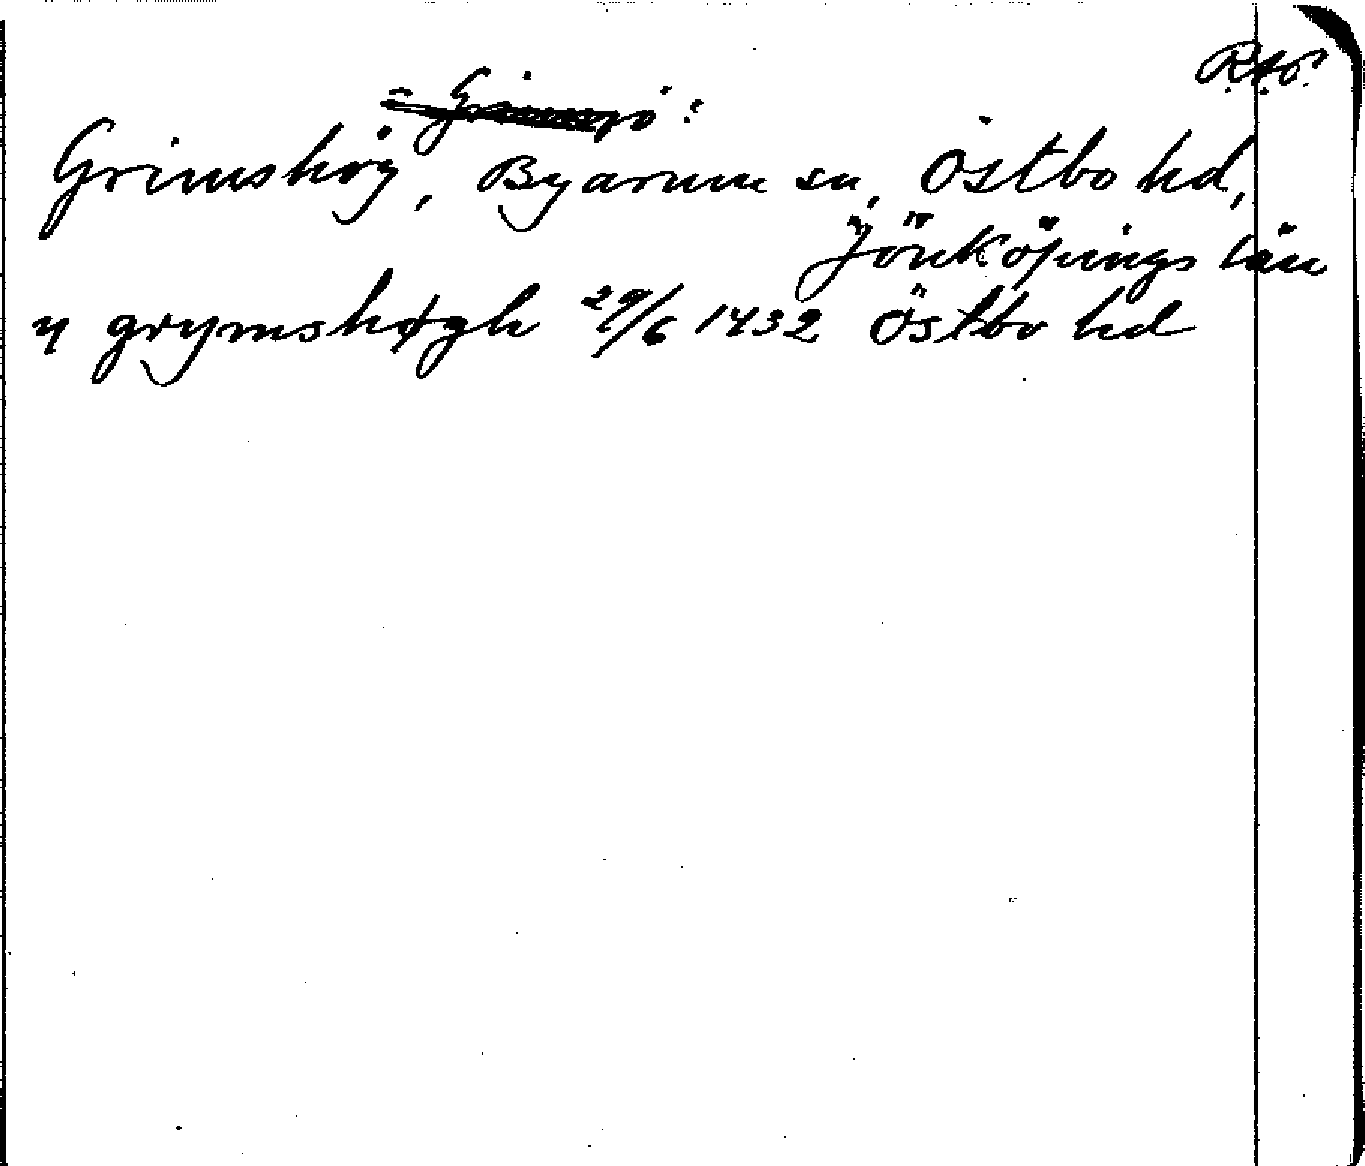 R.A.P.
Grimshög, Byarum sn, Östbo hd,
Jönköpings län
y grymshøgh 29/6 1432 Östbo hd